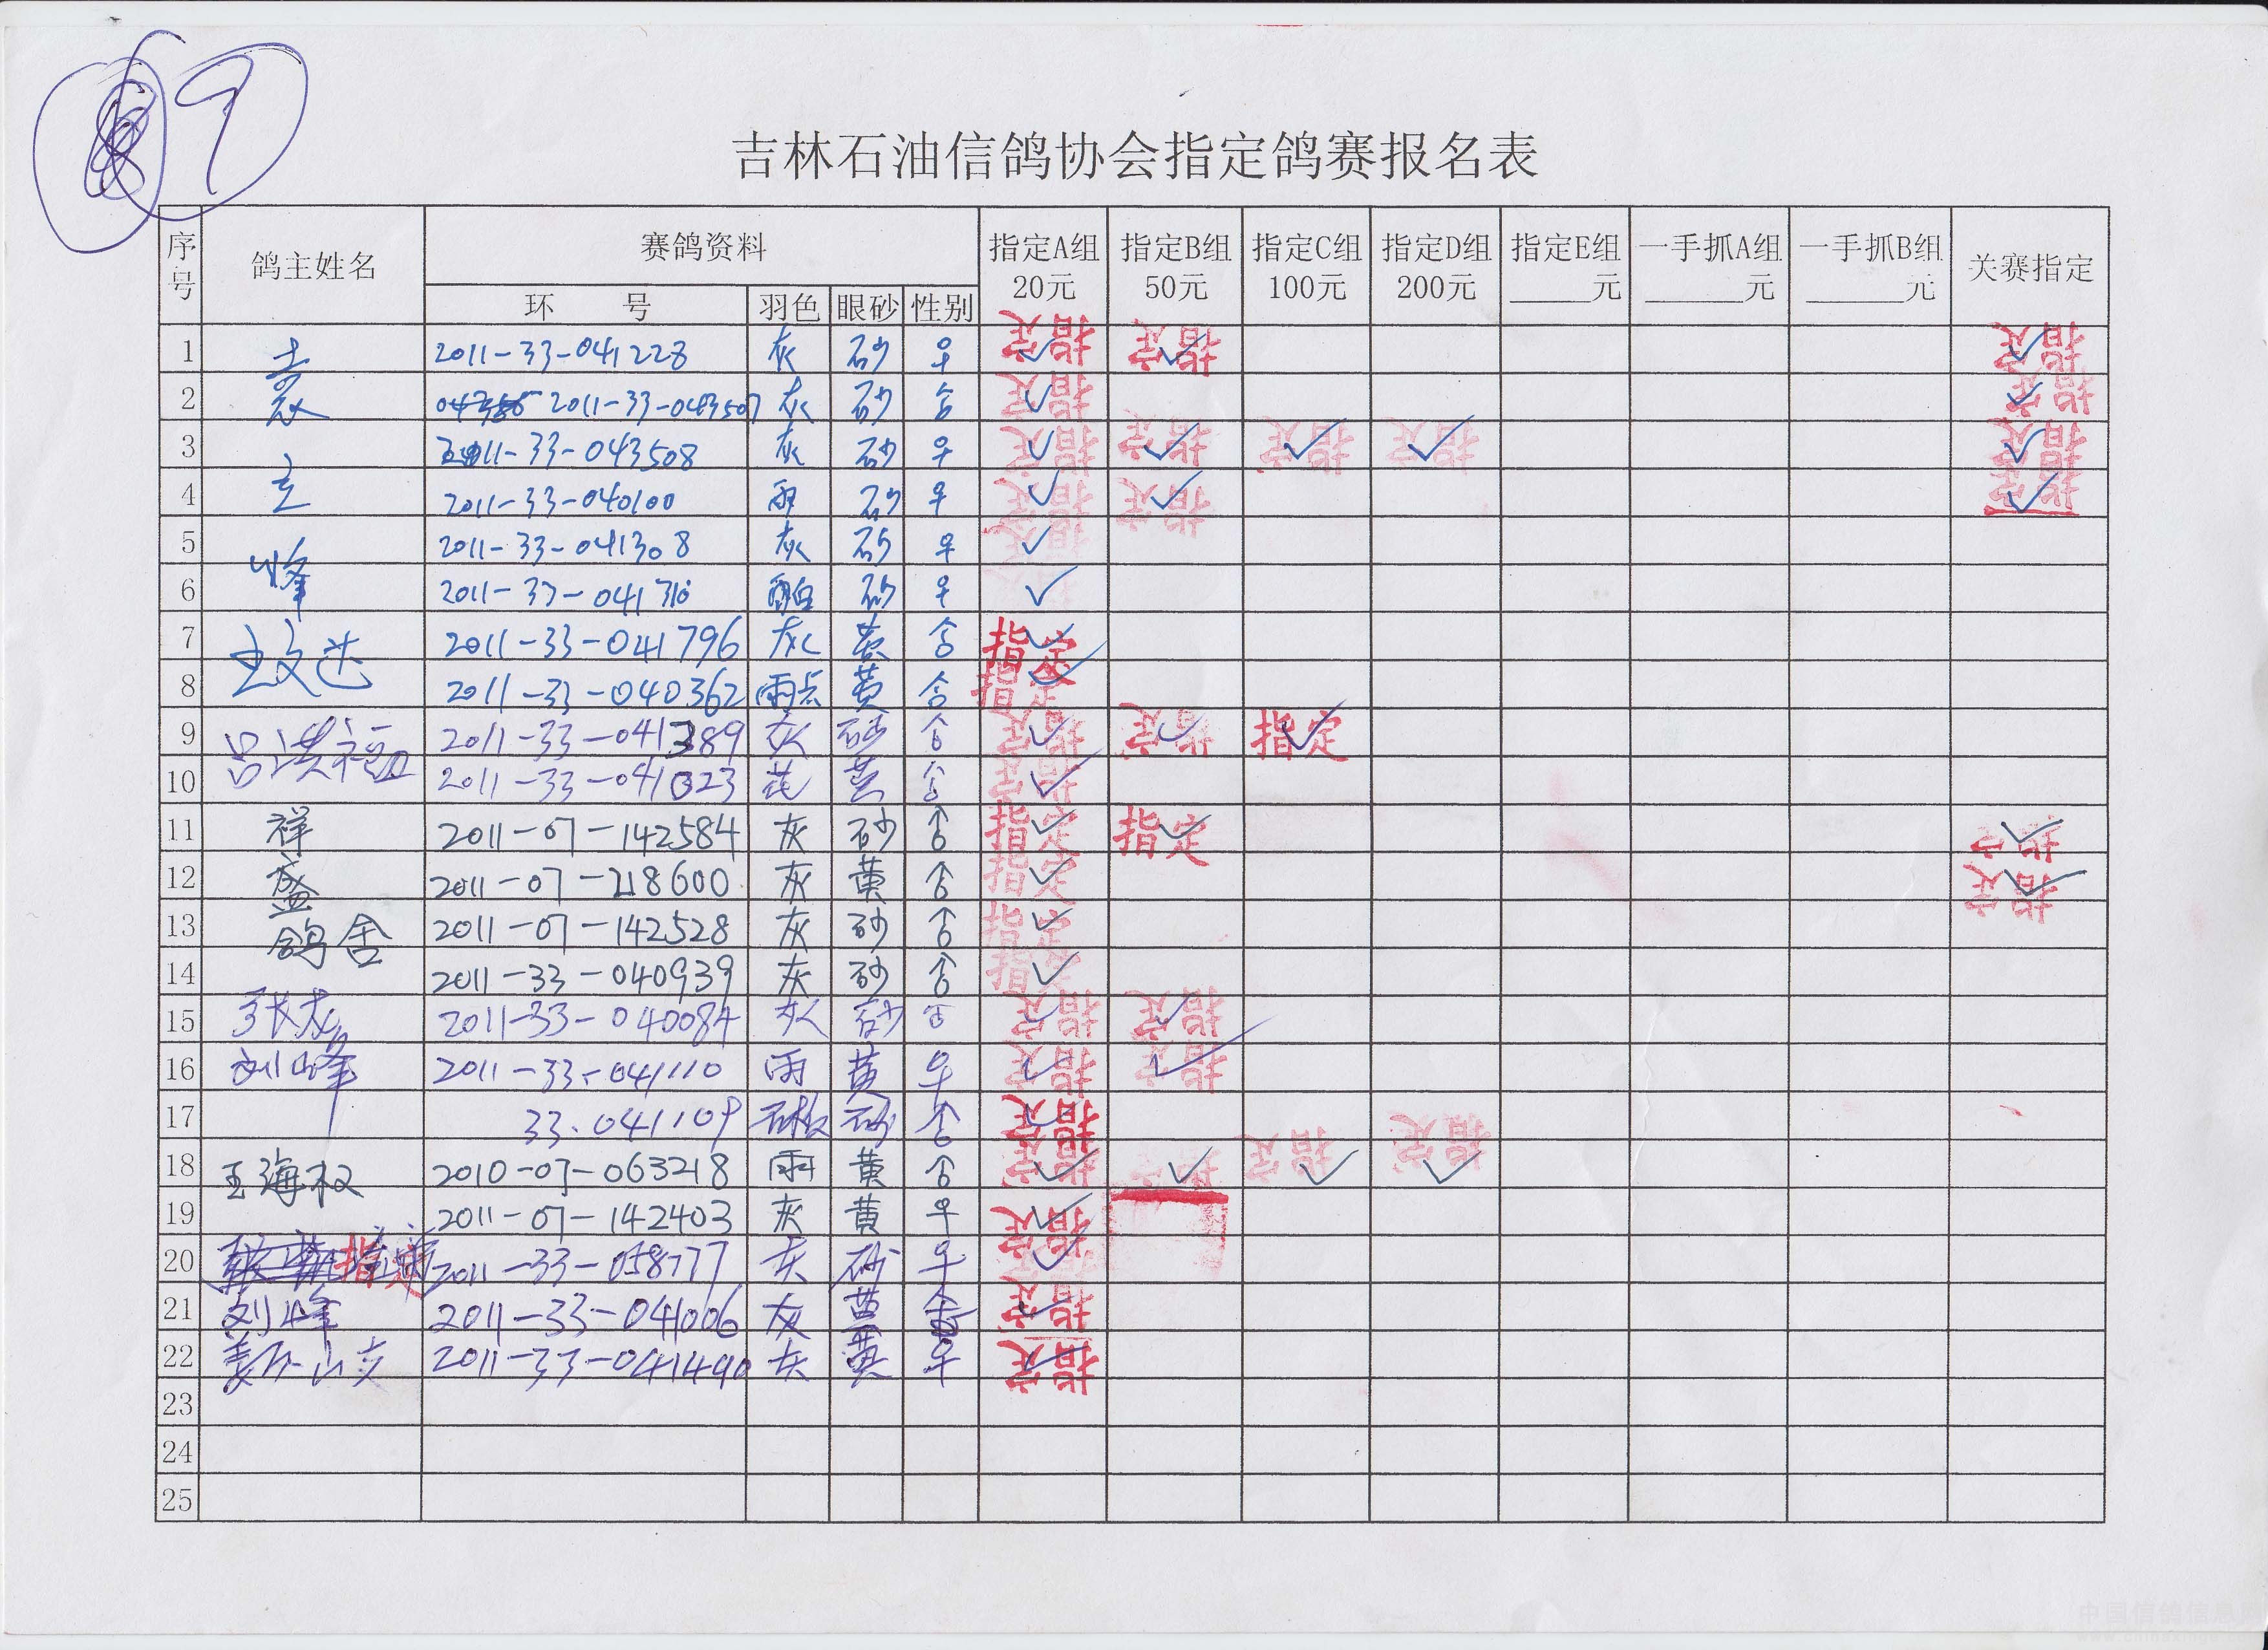 9
吉林石油信鸽协会指定鸽赛报名表
序号 鸽主姓名 赛鸽资料 指定A组 20元 指定B组 50元 指定C组 100元 指定D组 200元 指定E组 ______元 一手抓A组 ______元 一手抓B组 ______元 关赛指定
环 号 羽色 眼砂 性别
1 2011-33-041228 灰 砂 ♀ 指定 指定 指定
2 2011-33-043507 灰 砂 指定 指定
3 2011-33-043508 灰 砂 ♀ 指定 指定 指定 指定 指定
4 立 2011-33-040100 雨 砂 ♀ 指定 指定 指定
5 2011-33-041308 灰 砂 ♀ 指定
6 峰 2011-33-041310 砂 ♀
7 王文达 2011-33-041796 灰 黄 指定
8 2011-33-040362 雨点 黄 指定
9 吕洪福 2011-33-041389 灰 砂 指定 指定 指定
10 2011-33-041023 花 黄 指定
11 祥 2011-07-142584 灰 砂 指定 指定 指定
12 盛 2011-07-218600 灰 黄 指定 指定
13 鸽舍 2011-07-142528 灰 砂 指定
14 2011-33-040939 灰 砂 指定
15 张友 2011-33-040084 灰 砂 指定 指定
16 刘峰 2011-33-041110 雨 黄 ♀ 指定 指定
17 33-041109 石板 砂 指定
18 王海权 2010-07-063218 雨 黄 指定 指定 指定 指定
19 2011-07-142403 灰 黄 ♀ 指定
20 指定 2011-33-058777 灰 砂 ♀
21 刘峰 2011-33-041006 灰 黄 指定
22 2011-33-041490 灰 黄 ♀ 指定
23
24
25
中国信鸽信息网